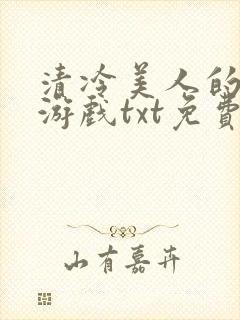 清冷美人的
游戏txt免費
山有嘉卉